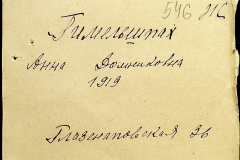 546 81с
Гимельшпах
Анна Доминиковна
1919
Глазенаповская 36